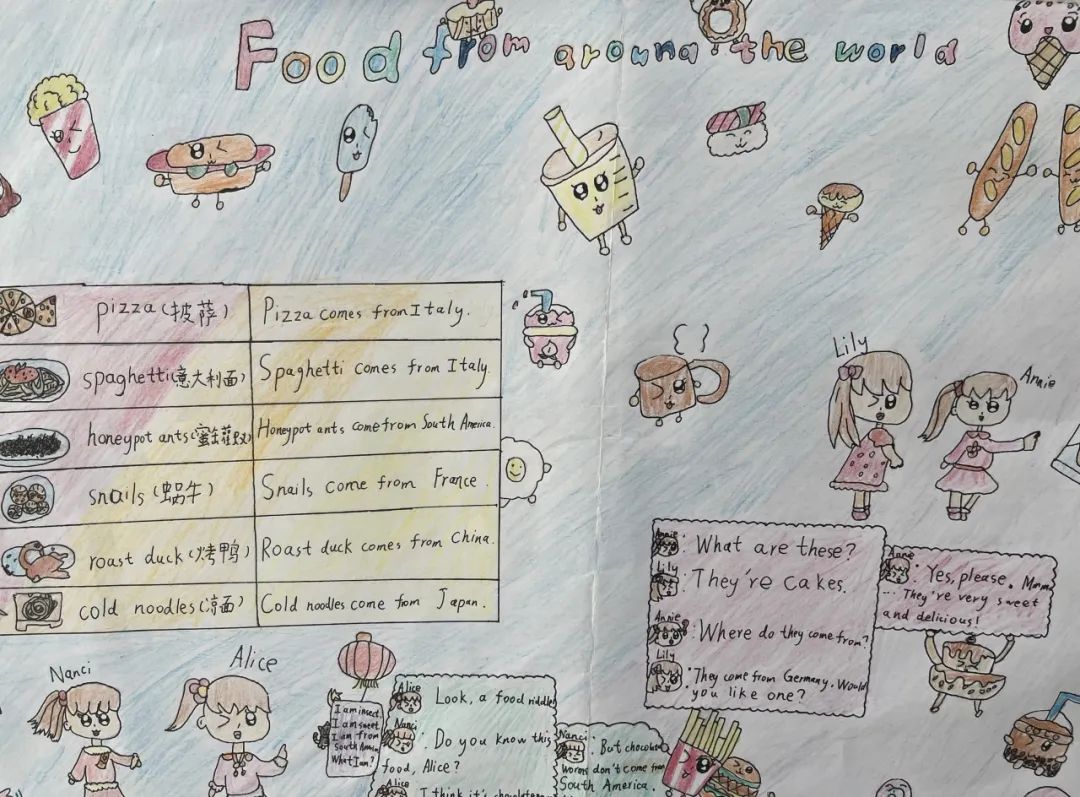 Food from around the world
pizza(披萨)
Pizza comes from Italy.
spaghetti(意大利面)
Spaghetti comes from Italy.
honeypot ants(蜜罐蚁)
Honeypot ants come from South America.
snails(蜗牛)
Snails come from France.
roast duck(烤鸭)
Roast duck comes from China.
cold noodles(凉面)
Cold noodles come from Japan.
Lily
Annie
Annie
: What are these?
Lily
: They're cakes.
Annie
: Where do they come from?
Lily
: They come from Germany. Would
you like one?
Anne
: Yes, please. Mmm
... They're very sweet
and delicious!
Nanci
Alice
I am insect
I am sweet
I am from
South America
What I am?
Alice
: Look, a food riddle
Nanci
: Do you know this
food, Alice?
Alice
I think it's chocolate
Nanci
: But chocolate
worms don't come from
South America.